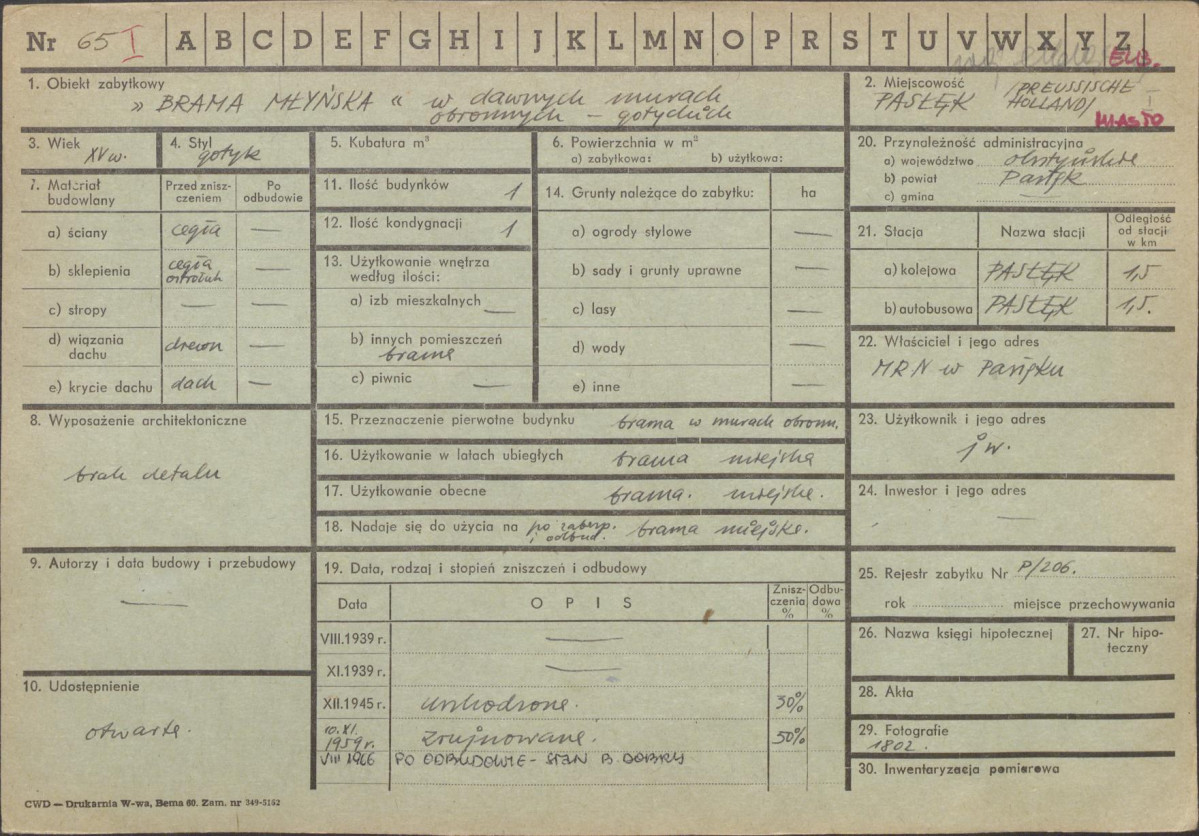 Nr 65 I A B C D E F G H I J K L M N O P R S T U V W X Y Z
ELB.
1. Obiekt zabytkowy
„ BRAMA MŁYŃSKA “ w dawnych murach
obronnych – gotyckich
2. Miejscowość /PREUSSISCHE
PASŁĘK HOLLAND/
MIASTO
3. Wiek
XV w.
4. Styl
gotyk
5. Kubatura m³
6. Powierzchnia w m²
a) zabytkowa: b) użytkowa:
20. Przynależność administracyjna
a) województwo olsztyńskie
b) powiat Pasłęk
c) gmina
7. Materiał budowlany
Przed zniszczeniem
Po odbudowie
a) ściany cegła —
b) sklepienia cegła —
ostrołuk
c) stropy — —
d) wiązania dachu drewn —
e) krycie dachu dach —
11. Ilość budynków 1
12. Ilość kondygnacji 1
13. Użytkowanie wnętrza
według ilości:
a) izb mieszkalnych —
b) innych pomieszczeń
brama
c) piwnic —
14. Grunty należące do zabytku: ha
a) ogrody stylowe —
b) sady i grunty uprawne —
c) lasy —
d) wody —
e) inne —
21. Stacja Nazwa stacji Odległość od stacji w km
a) kolejowa PASŁĘK 1,5
b) autobusowa PASŁĘK 1,5.
22. Właściciel i jego adres
MRN w Pasłęku
8. Wyposażenie architektoniczne
brak detalu
15. Przeznaczenie pierwotne budynku brama w murach obronn.
16. Użytkowanie w latach ubiegłych brama miejska
17. Użytkowanie obecne brama. miejska.
18. Nadaje się do użycia na po zabezp. i odbud. brama miejska.
23. Użytkownik i jego adres
j w.
24. Inwestor i jego adres
—
9. Autorzy i data budowy i przebudowy
—
19. Data, rodzaj i stopień zniszczeń i odbudowy
Data OPIS Zniszczenia % Odbudowa %
VIII.1939 r. —
XI.1939 r. —
XII.1945 r. uszkodzone. 30%
10.XI.
1959 r. zrujnowane. 50%
VIII 1966 PO ODBUDOWIE – STAN B. DOBRY
25. Rejestr zabytku Nr P/206.
rok miejsce przechowywania
26. Nazwa księgi hipotecznej
27. Nr hipoteczny
10. Udostępnienie
otwarte.
28. Akta
29. Fotografie
1802.
30. Inwentaryzacja pomiarowa
CWD — Drukarnia W-wa, Bema 60. Zam. nr 349-5152